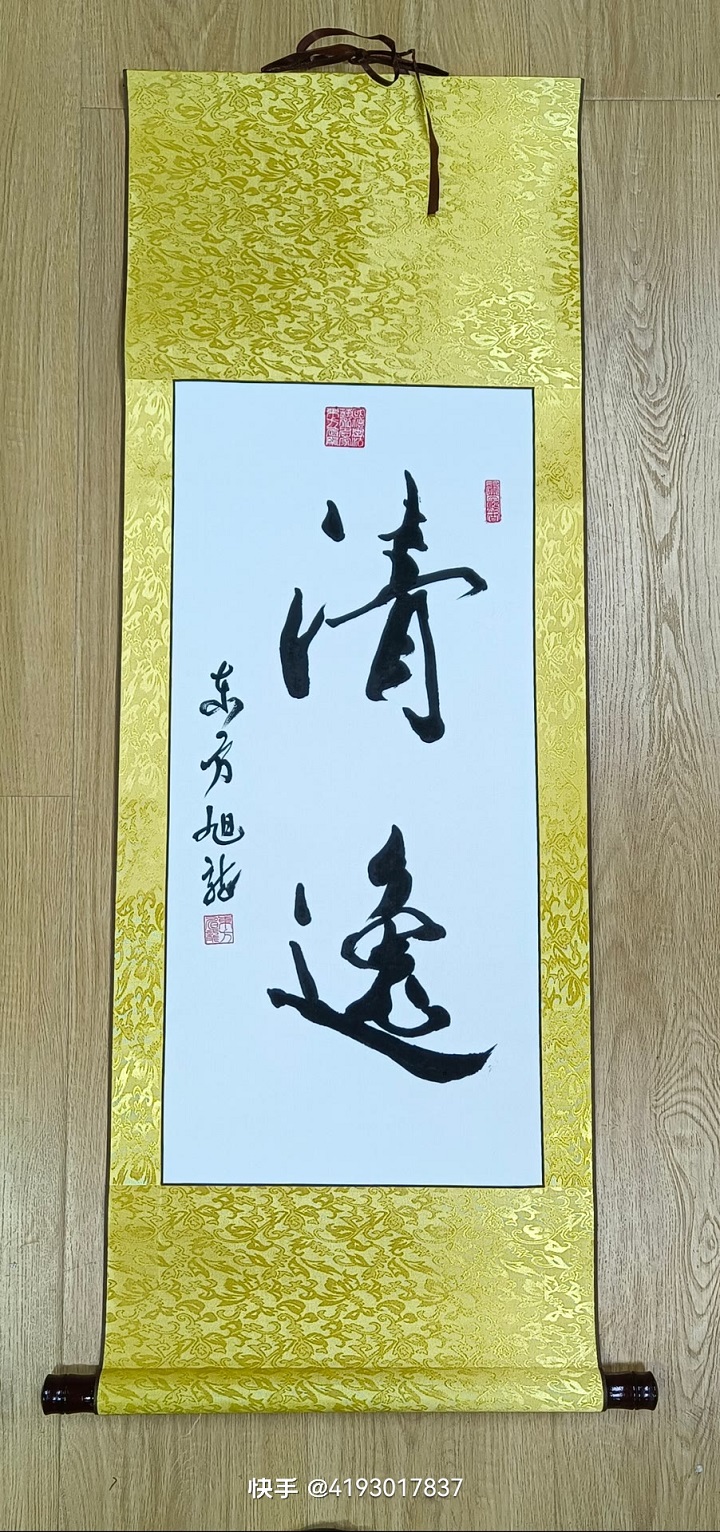 清逸
东方旭龙
快手 @4193017837